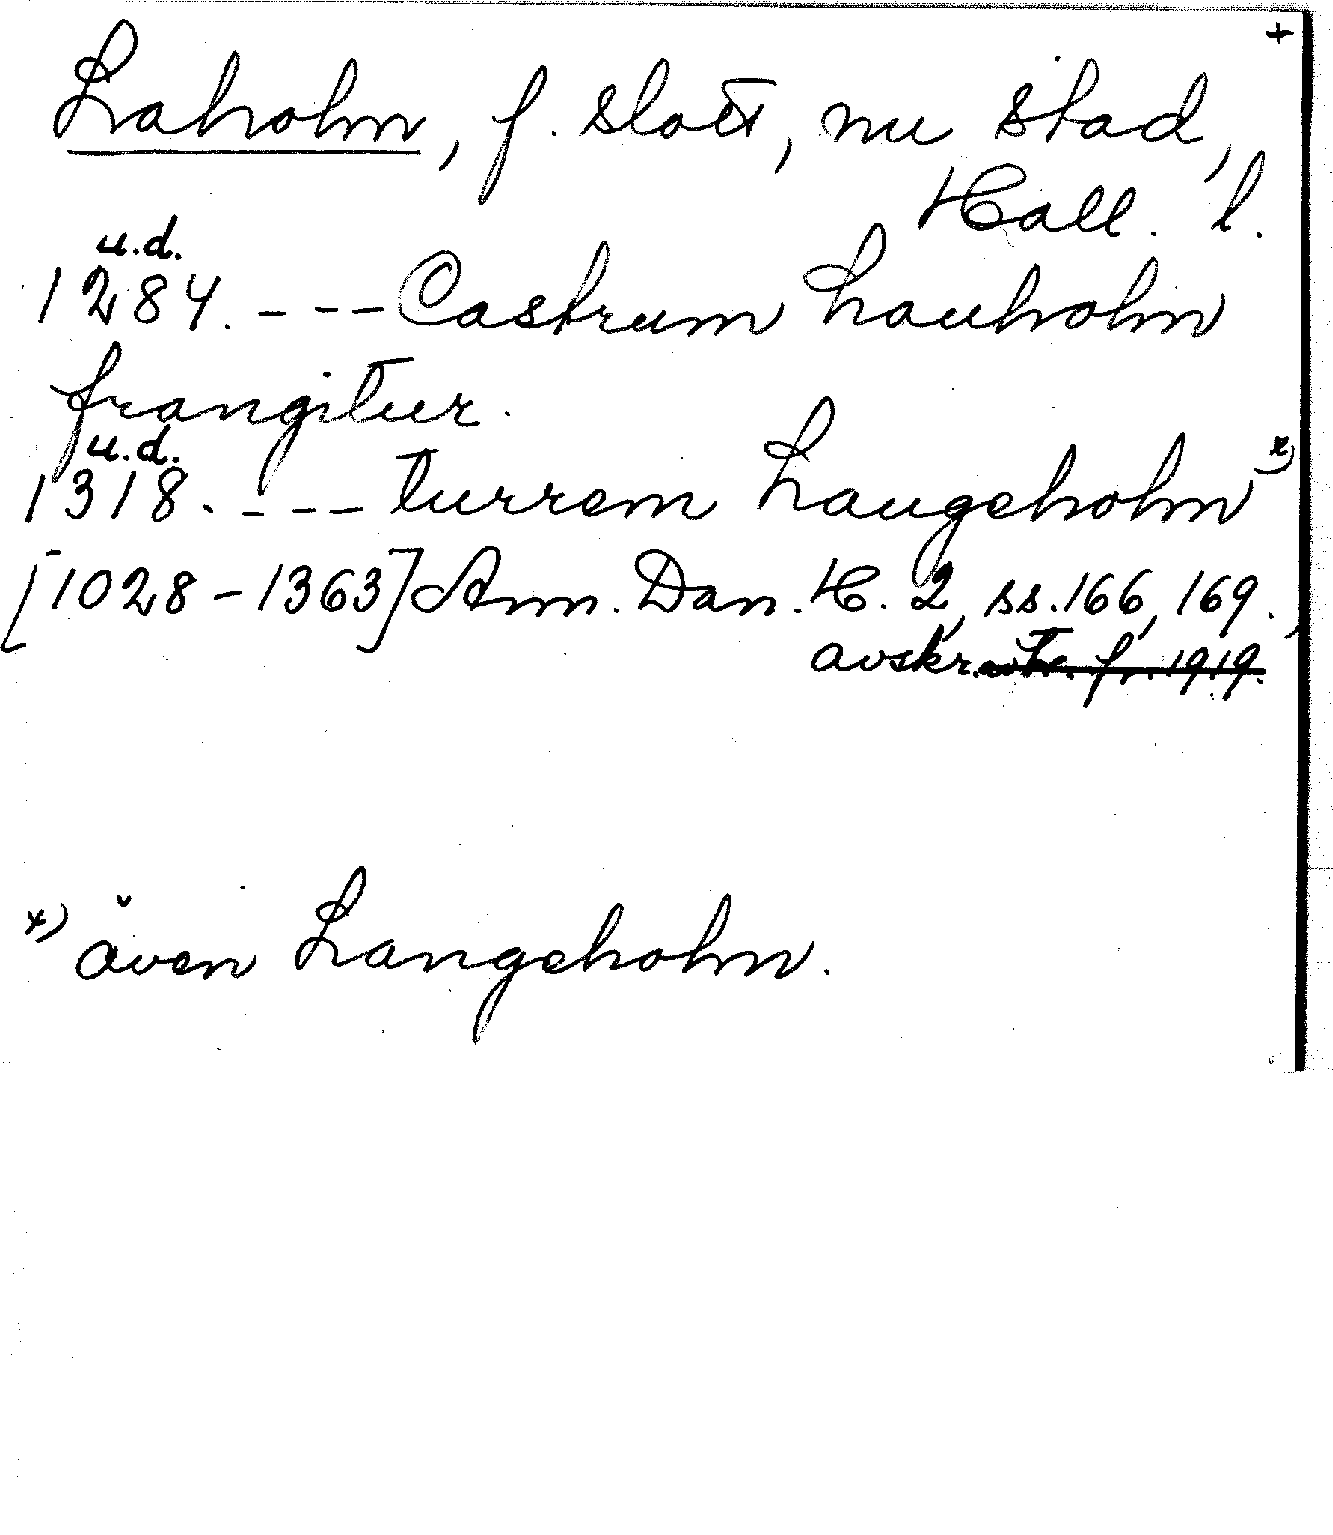 +
Laholm, f. slott, nu stad,
Hall. l.
u.d.
1284. - - - Castrum Lauholm
frangitur.
u.d.
1318. - - - turrem Laugeholm x)
[1028 - 1363] Ann. Dan. H. 2, ss. 166, 169.,
avskr. f. 1919.
x) även Langeholm.